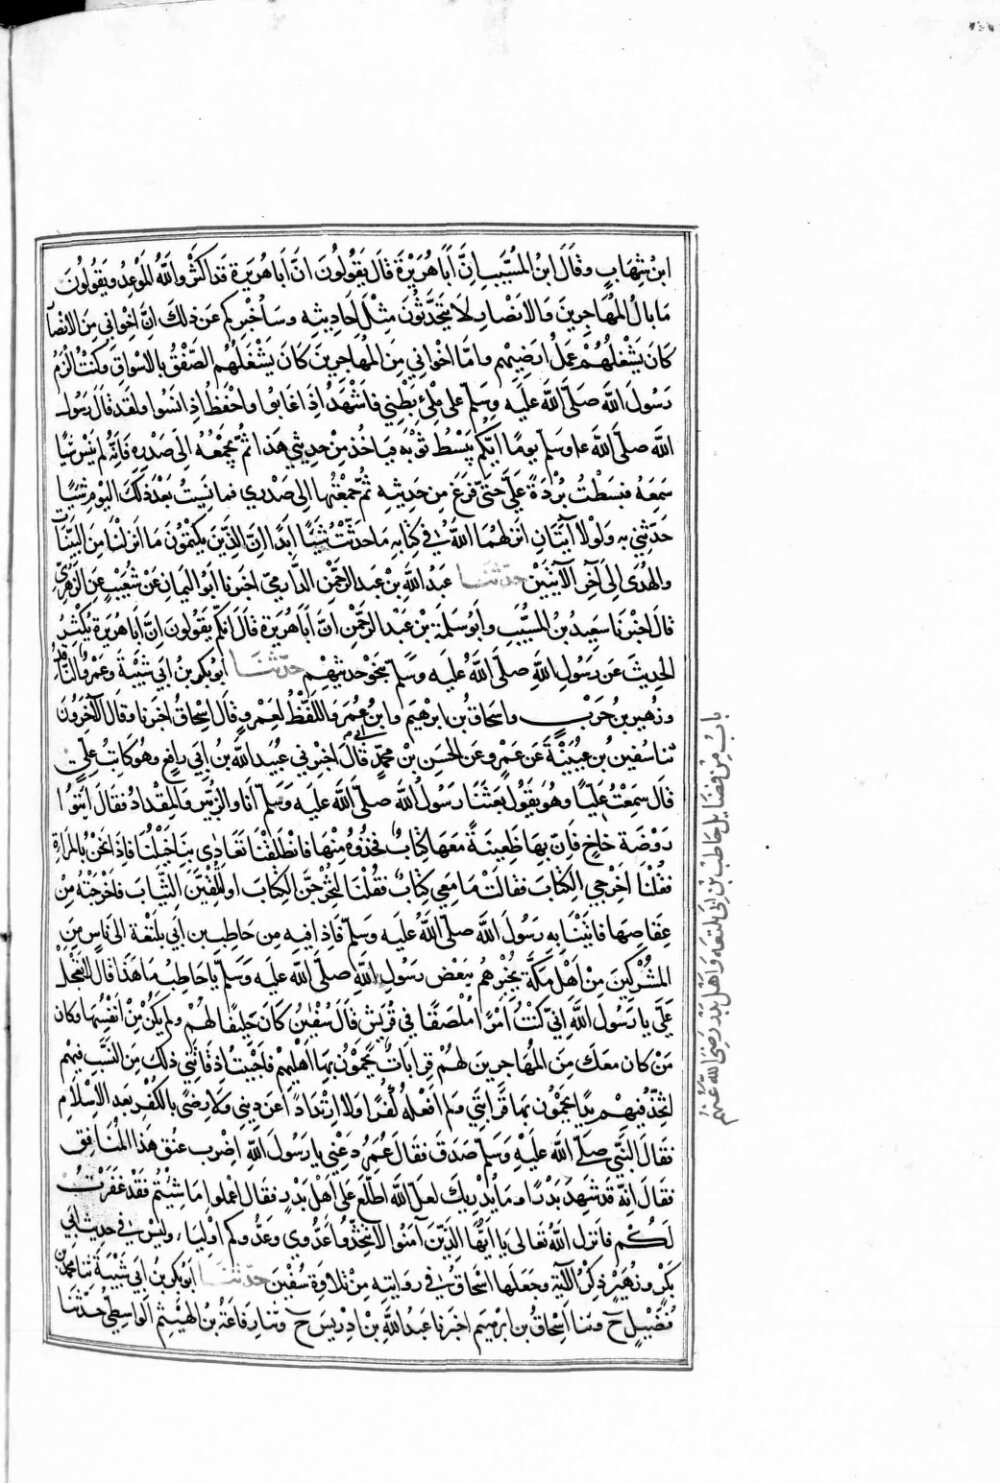 ابنُ شِهَابٍ وقَالَ ابنُ المُسَيَّبِ اِنَّ اَبَا هُرَيْرَةَ قَالَ يَقُولُونَ اَنَّ اَبَا هُرَيرَةَ قَد اَكثَرَ واللَّهُ المَوْعِدُ ويَقُولُونَ
مَا بَالُ المُهَاجِرِينَ وَالاَنصَارِ لَا يَتَحَدَّثُونَ مِثْلَ اَحَادِيثِهِ وسَاُخْبِركُم عَن ذلكَ اِنَّ اِخوَانِي مِنَ الانصَار
كَانَ يَشْغَلُهُمْ عَمَلُ اَرَضِيْهِم واَمَّا اخْوَانِي مِنَ المُهَاجِرِينَ كَانَ يَشْغَلُهُم الصَّفْقُ بِالاسْوَاقِ وكُنْتُ اَلزَمُ
رَسُولَ اللَّهِ صَلَّى اللَّهُ عَلَيهِ وسَلَّم عَلى مِلْءِ بَطْنِي فَاَشْهَدُ اِذَا غَابُوا واَحْفَظُ اِذَا نَسُوا ولَقَد قَالَ رَسُولُ
اللَّهِ صلَّى اللَّهُ علَيه وسَلّم يومًا اَيُّكُم يَبْسُطُ ثَوْبَهُ فيَاخُذُ مِنْ حَدِيثِي هَذَا ثمَّ يَجْمَعُهُ اِلَى صَدْرِهِ فَاِنَّهُ لَم يَنْسَ شَيْئًا
سَمِعَهُ فبَسَطْتُ بُرْدَةً عَلَيَّ حَتَّى فَرَغَ مِن حَدِيثِهِ ثمَّ جَمَعْتُهَا اِلَى صَدْرِي فمَا نَسِيْتُ بَعْدَ ذَلِكَ اليَومِ شَيْئًا
حَدَّثَنِي بِهِ وَلَوْلَا آيَتَانِ اَنزَلَهُمَا اللَّهُ فِي كِتَابِهِ مَا حَدَّثْتُ شَيْئًا اَبَدًا اِنَّ الَّذِينَ يَكتُمُونَ مَا اَنزَلْنَا مِنَ البَيِّنَاتِ
والهُدَى اِلَى آخِرِ الآيَتَيْنِ حَدَّثَنَا عَبدُ اللَّهِ بْنِ عَبدِ الرَّحْمَنِ الدَّارِمِيّ اخبَرنَا اَبُو اليَمَانِ عَنْ شُعَيْبٍ عَنِ الزُّهْرِيّ
قَالَ اخبَرنَا سَعِيدُ بْنُ المُسَيَّبِ وَاَبُو سَلَمَةَ بْن عَبْدِ الرَّحْمَنِ اَنَّ اَبَا هُرَيْرَةَ قَالَ اِنَّكُم تَقُولُونَ اِنَّ اَبَا هُرَيْرَةَ يُكْثِرُ
الحَدِيثَ عَن رَسُولِ اللَّهِ صلَّى اللَّهُ عَلَيهِ وسَلّم بنَحْوِ حَدِيثِهِمْ حَدَّثَنَا اَبُو بَكرِ بنُ اَبِي شَيْبَةَ وَعَمرٌو النَّاقِدُ
وزُهَيرُ بنُ حَرْبٍ واِسحَاقُ بن ابرهِيمَ وابنُ عُمَرَ وَاللَّفْظُ لِعَمرٍو قَالَ اِسْحَاقُ اخبَرنَا وقَالَ الآخَرُونَ
ثنا سُفينُ بنُ عُيَيْنَةَ عَن عَمرٍو عَنِ الحَسَنِ بْنِ مُحَمَّدٍ قَالَ اَخبَرنِي عُبَيدُ اللَّهِ بنُ اَبِي رَافِعٍ وهُوَ كَاتِبُ عَلِيّ
قَالَ سَمِعْتُ عَلِيًّا وهُوَ يَقُولُ بَعَثَنَا رَسُولُ اللَّهِ صلَّى اللَّهُ عَلَيهِ وَسَلم اَنَا والزُّبَيرَ والمِقدَادَ فقَالَ ائْتُوا
رَوْضَةَ خَاخٍ فَاِنَّ بِهَا ظَعِينَةً مَعَهَا كِتَابٌ فخُذُوهُ مِنْهَا فانْطَلَقْنَا تَعَادَى بِنَا خَيْلُنَا فَاِذَا نَحْنُ بالمَرْاَةِ
فَقُلْنَا اَخْرِجِي الكِتَابَ فقَالَتْ مَا مَعِي كِتَابٌ فقُلْنَا لَتُخْرِجِنَّ الكِتَابَ اَو لَنُلْقِيَنَّ الثِّيَابَ فاَخْرَجَتْهُ مِنْ
عِقَاصِهَا فاَتَيْنَا بِهِ رَسُولَ اللَّهِ صلَّى اللَّهُ عَلَيهِ وسَلم فَاِذَا فِيهِ مِن حَاطِبِ بن اَبِي بَلتَعَةَ اِلَى نَاسٍ مِنَ
المُشْرِكِينَ مِنْ اَهْلِ مَكَّةَ يُخْبِرُهُم بِبَعْضِ رَسُولِ اللَّهِ صلَّى اللَّهُ عَلَيهِ وَسَلّم يا حَاطِبُ مَا هَذَا قَالَ لَا تَعْجَلْ
عَلَيَّ يا رَسُولَ اللَّهِ اِنِّي كُنتُ امْرَأً مُلْصَقًا فِي قُرَيْشٍ قَالَ سُفْيٰنُ كَانَ حَلِيفًا لَهُمْ ولَمْ يَكُنْ مِنْ اَنْفُسِهَا وكَانَ
مَنْ كَان مَعَكَ مِنَ المُهَاجِرِينَ لَهُمْ قرَابَاتٌ يَحْمُونَ بِهَا اَهْلِيهِم فاَحْبَبْتُ اِذ فَاتَنِي ذلكَ مِنَ النَّسَبِ فِيهِم
اَن اتَّخِذَ فِيهِمْ يَدًا يَحْمُونَ بِهَا قَرَابَتِي ولَم اَفعَلهُ كُفْرًا ولا ارْتِدَادًا عَن دِينِي ولَا رِضًى بِالكُفْرِ بعدَ الاِسْلَامِ
فقَالَ النَّبِيُّ صَلَّى اللَّهُ عَلَيْهِ وَسَلم صَدَقَ فقَالَ عُمَرُ دَعْنِي يا رَسُولَ اللَّهِ اضْرِب عُنُقَ هَذَا المُنَافِقِ
فقَالَ اِنَّهُ قَد شَهِدَ بَدْرًا ومَا يُدْرِيكَ لعَلَّ اللَّهَ اطَّلَعَ عَلَى اَهْلِ بَدْرٍ فقَالَ اعمَلُوا مَا شِئْتُم فقَدْ غَفَرْتُ
لَكُمْ فاَنزَلَ اللَّهُ تَعَالَى يَا اَيُّهَا الَّذِينَ آمَنُوا لَا تَتَّخِذُوا عَدُوِّي وعَدُوَّكُم اَوْلِيَاء، ولَيْسَ فِي حَدِيثِ اَبِي
بَكرٍ وزُهَيْرٍ ذِكْرُ الآيَةِ وجَعَلَهَا اِسْحَاقُ فِي رِوَايَتِهِ مِنْ تِلَاوَةِ سُفْيٰنَ حَدَّثَنَا اَبُو بَكرِ بنُ اَبِي شَيْبَةَ ثنا مُحَمَّدُ بن
فُضَيْلٍ ح وثنا اِسْحَاقُ بن ابرهِيم اخبَرنَا عَبدُ اللَّهِ بن اِدْرِيسَ ح وثنا رِفَاعَةُ بنُ الهَيْثَمِ الوَاسِطِيُّ حَدَّثَنَا
بابُ مِن فضَايل حَاطِب بْن ابى بَلتعَه وَاهْل بَدر رَضِىَ الله عَنهم